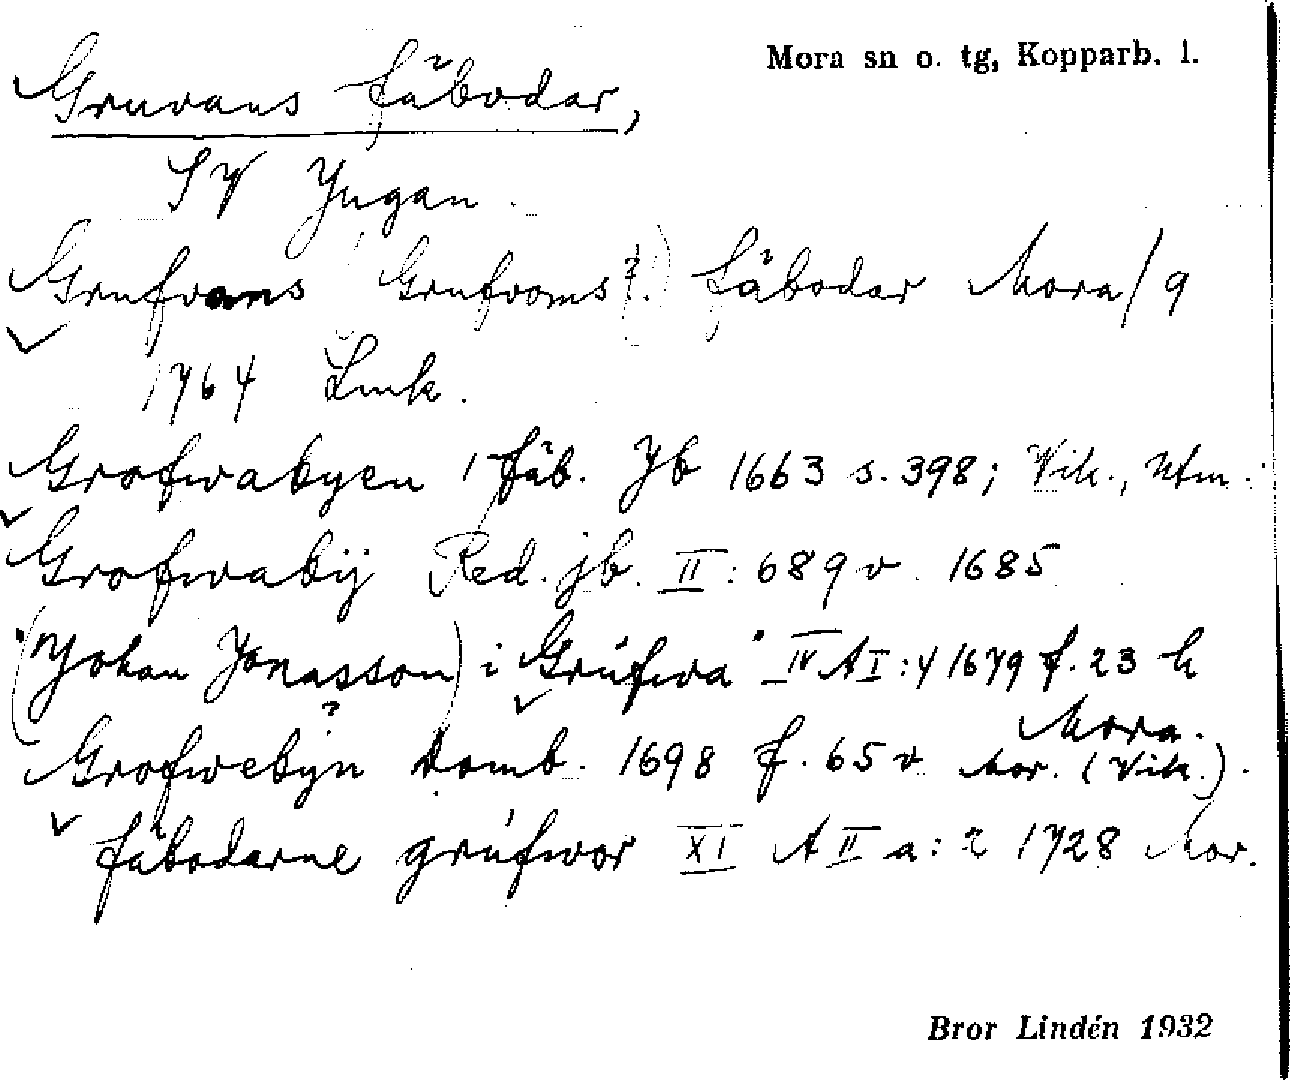 Mora sn o. tg, Kopparb. l.
Gruvans fäbodar,
SV Yngan.
Grufvans (Grufvoms?) fäbodar Mora/9
1764 Lmk.
Grofwabyen 1 fäb. Jb 1663 s. 398; Vik., Utm.
Grofwabÿ Red. jb. II: 689 v 1685
("Johan Jonasson) i Grúfwa" IV AI:4 1679 f. 23 h
Mora.
Grofwebÿn Domb. 1698 f. 65 v Mor. (Vik.).
fäbodarne grúfwor XI A II a: 2 1728 Mor.
Bror Lindén 1932